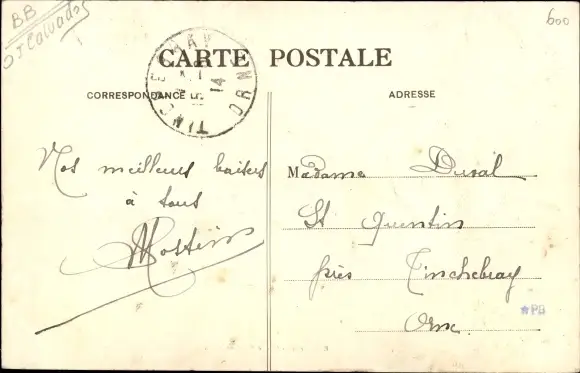 BB
OJ Calvados
600
CARTE POSTALE
CORRESPONDANCE
ADRESSE
TINCHEBRAY
14
ORNE
Nos meilleurs baisers
à tous
Madame Duval
St Quentin
près Tinchebray
Orne
*PB